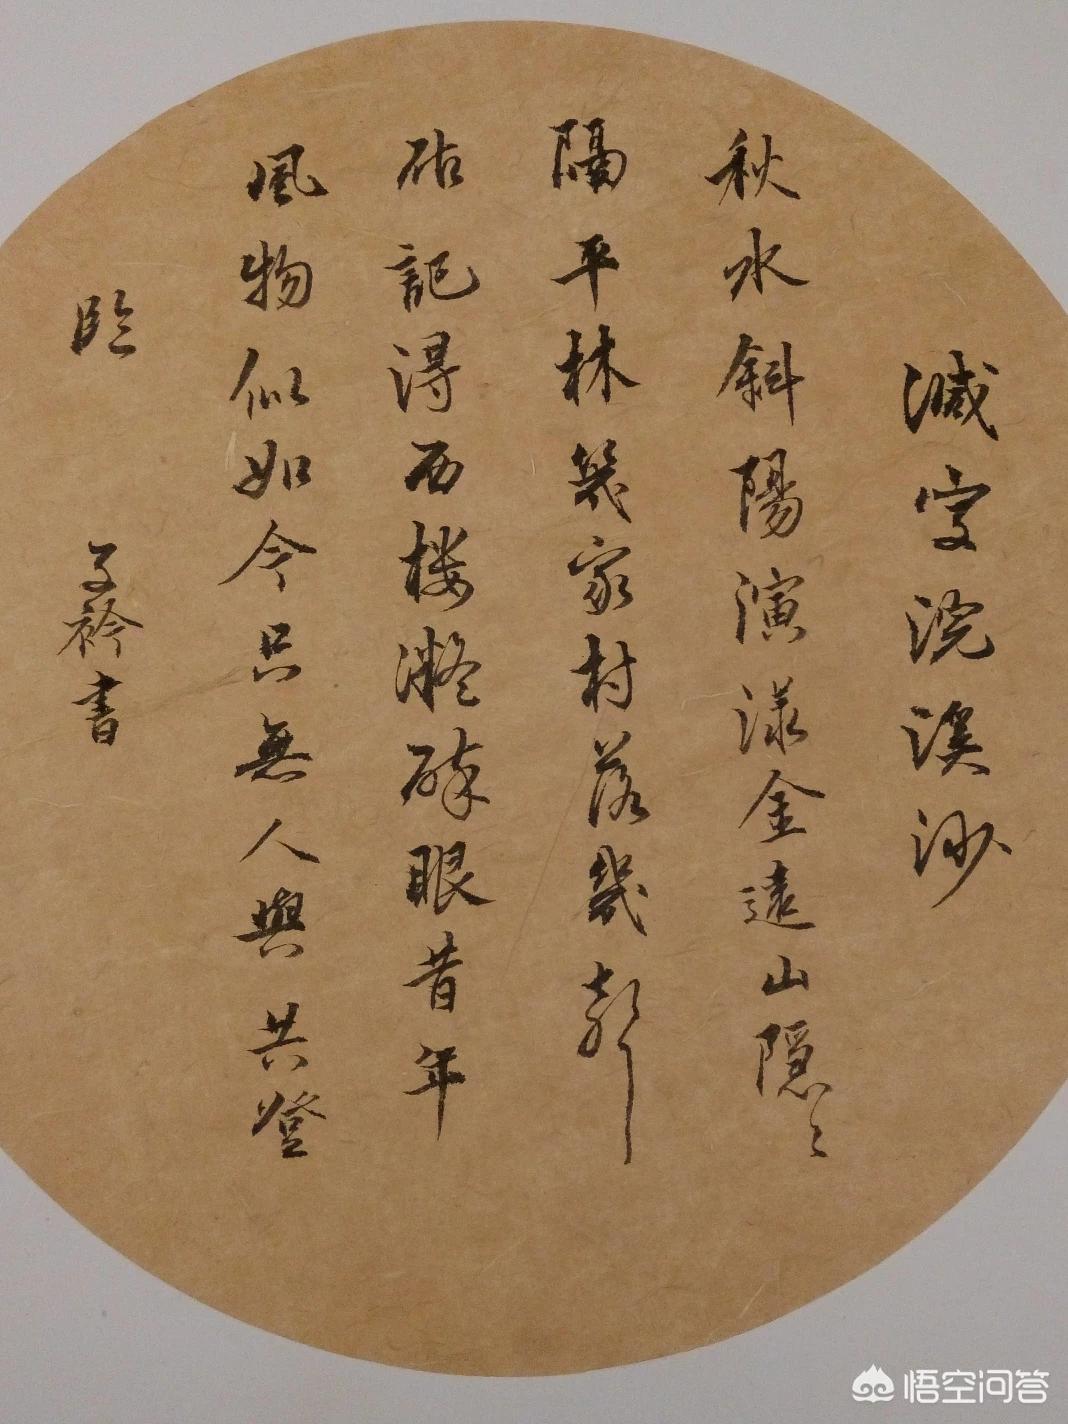 減字浣溪沙
秋水斜陽演漾金遠山隱々
隔平林幾家村落幾聲
砧記得西楼凝醉眼昔年
風物似如今只無人與共登
臨 子衿書
悟空问答